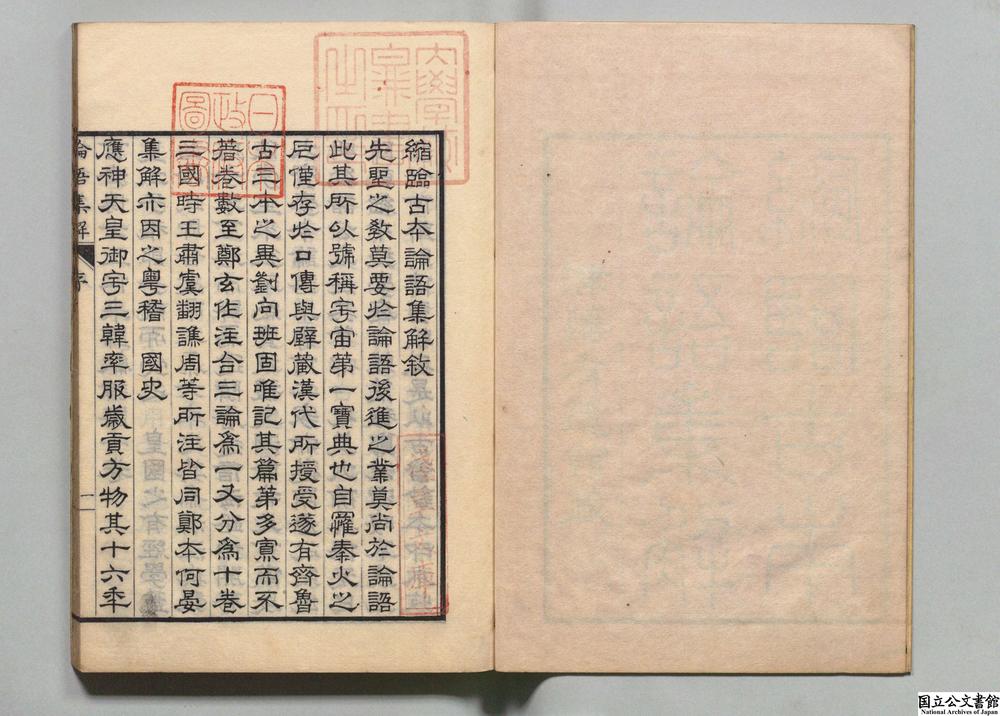 縮臨古本論語集解敘
先聖之教莫要於論語後進之業莫尚於論語
此其所以號稱宇宙第一寶典也自罹秦火之
厄僅存於口傳與壁藏漢代所授受遂有齊魯
古三本之異劉向班固唯記其篇第多寡而不
著卷數至鄭玄作注合三論為一又分為十卷
三國時王肅虞翻譙周等所注皆同鄭本何晏
集解亦因之粵稽 國史
應神天皇御宇三韓率服歲貢方物其十六年
論語集解 序 一
日本政府圖書
国立公文書館
National Archives of Japan